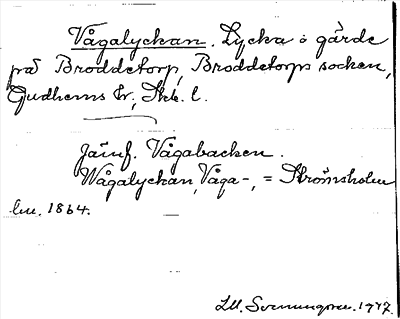 Vågalyckan. Lycka o gärde
på Broddetorp, Broddetorps socken,
Gudhems hr, Skb. l.
Jämf. Vågabacken.
Wågalyckan, Våga-, = Strömsholm
lm. 1864.
1777.